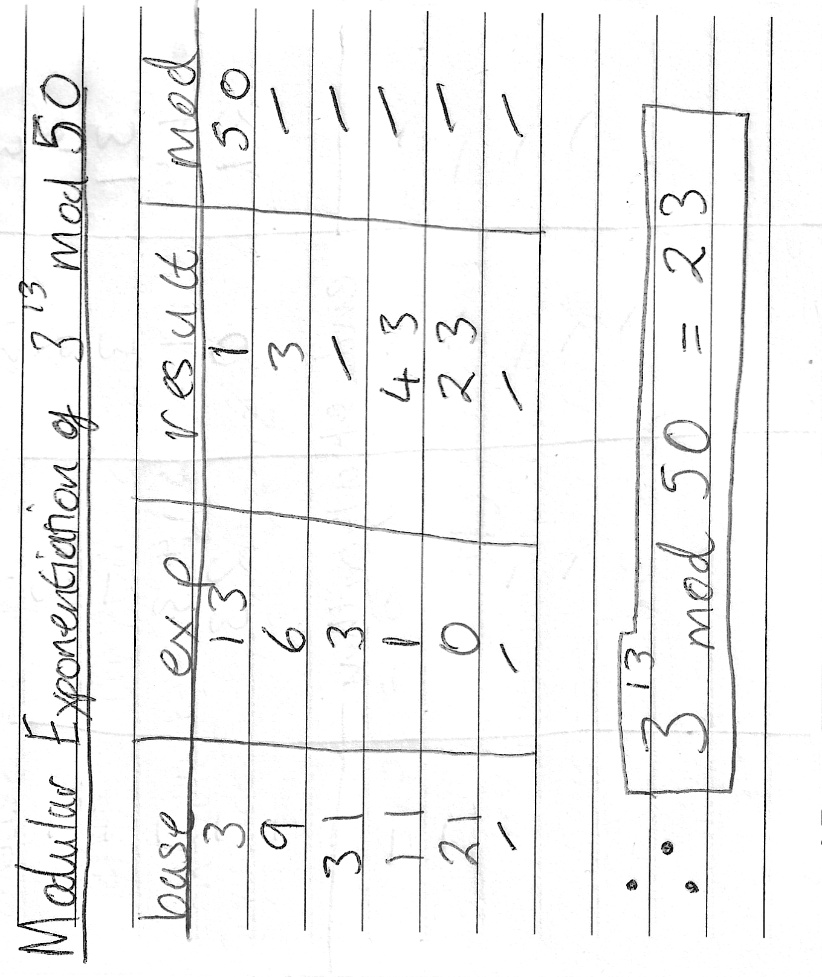 Modular Exponentiation of 3^13 mod 50
base exp result mod
3 13 1 50
9 6 3 -
31 3 - -
11 1 43 -
21 0 23 -
- - - -
∴ 3^13 mod 50 = 23